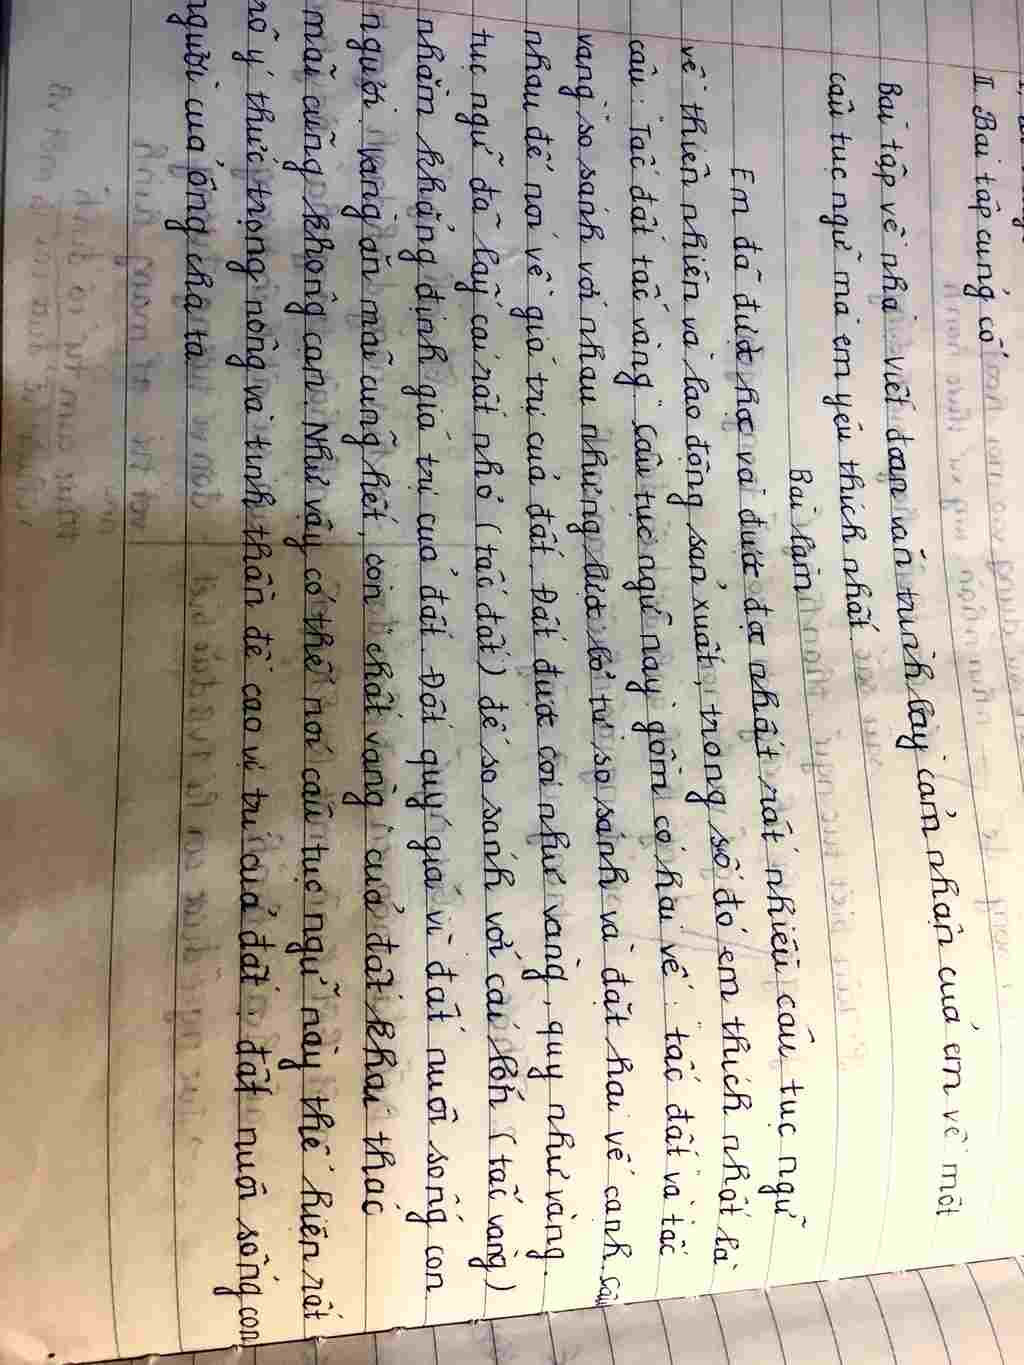 II. Bài tập củng cố
Bài tập về nhà: viết đoạn văn trình bày cảm nhận của em về một
câu tục ngữ mà em yêu thích nhất.
Bài làm
Em đã được học và được đọc nhất rất nhiều câu tục ngữ
về thiên nhiên và lao động sản xuất, trong số đó em thích nhất là
câu: "Tấc đất tấc vàng". Câu tục ngữ này gồm có hai vế: tấc đất và tấc
vàng so sánh với nhau nhưng lược bỏ từ so sánh và đặt hai vế cạnh
nhau để nói về giá trị của đất. Đất được coi như vàng, quý như vàng.
tục ngữ đã lấy cái rất nhỏ (tấc đất) để so sánh với cái lớn (tấc vàng)
nhằm khẳng định giá trị của đất. Đất quý giá vì đất nuôi sống con
người. Vàng ăn mãi cũng hết, còn "chất vàng" của đất khai thác
mãi cũng không cạn. Như vậy có thể nói câu tục ngữ này thể hiện rất
rõ ý thức trọng nông và tinh thần đề cao vị trí của đất, đất nuôi sống con
người của ông cha ta.